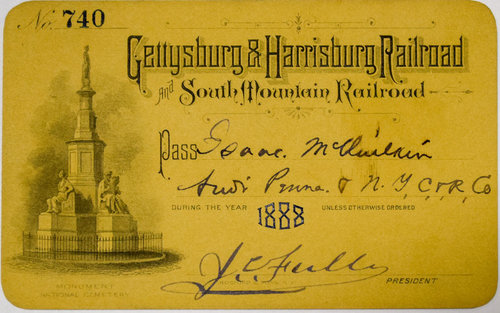 No. 740
Gettysburg & Harrisburg Railroad
and South Mountain Railroad
Pass Isaac. McQuilkin
Penna. & N. Y. C & R. Co
DURING THE YEAR 1888 UNLESS OTHERWISE ORDERED
J. C. Fuller
PRESIDENT
MONUMENT
NATIONAL CEMETERY